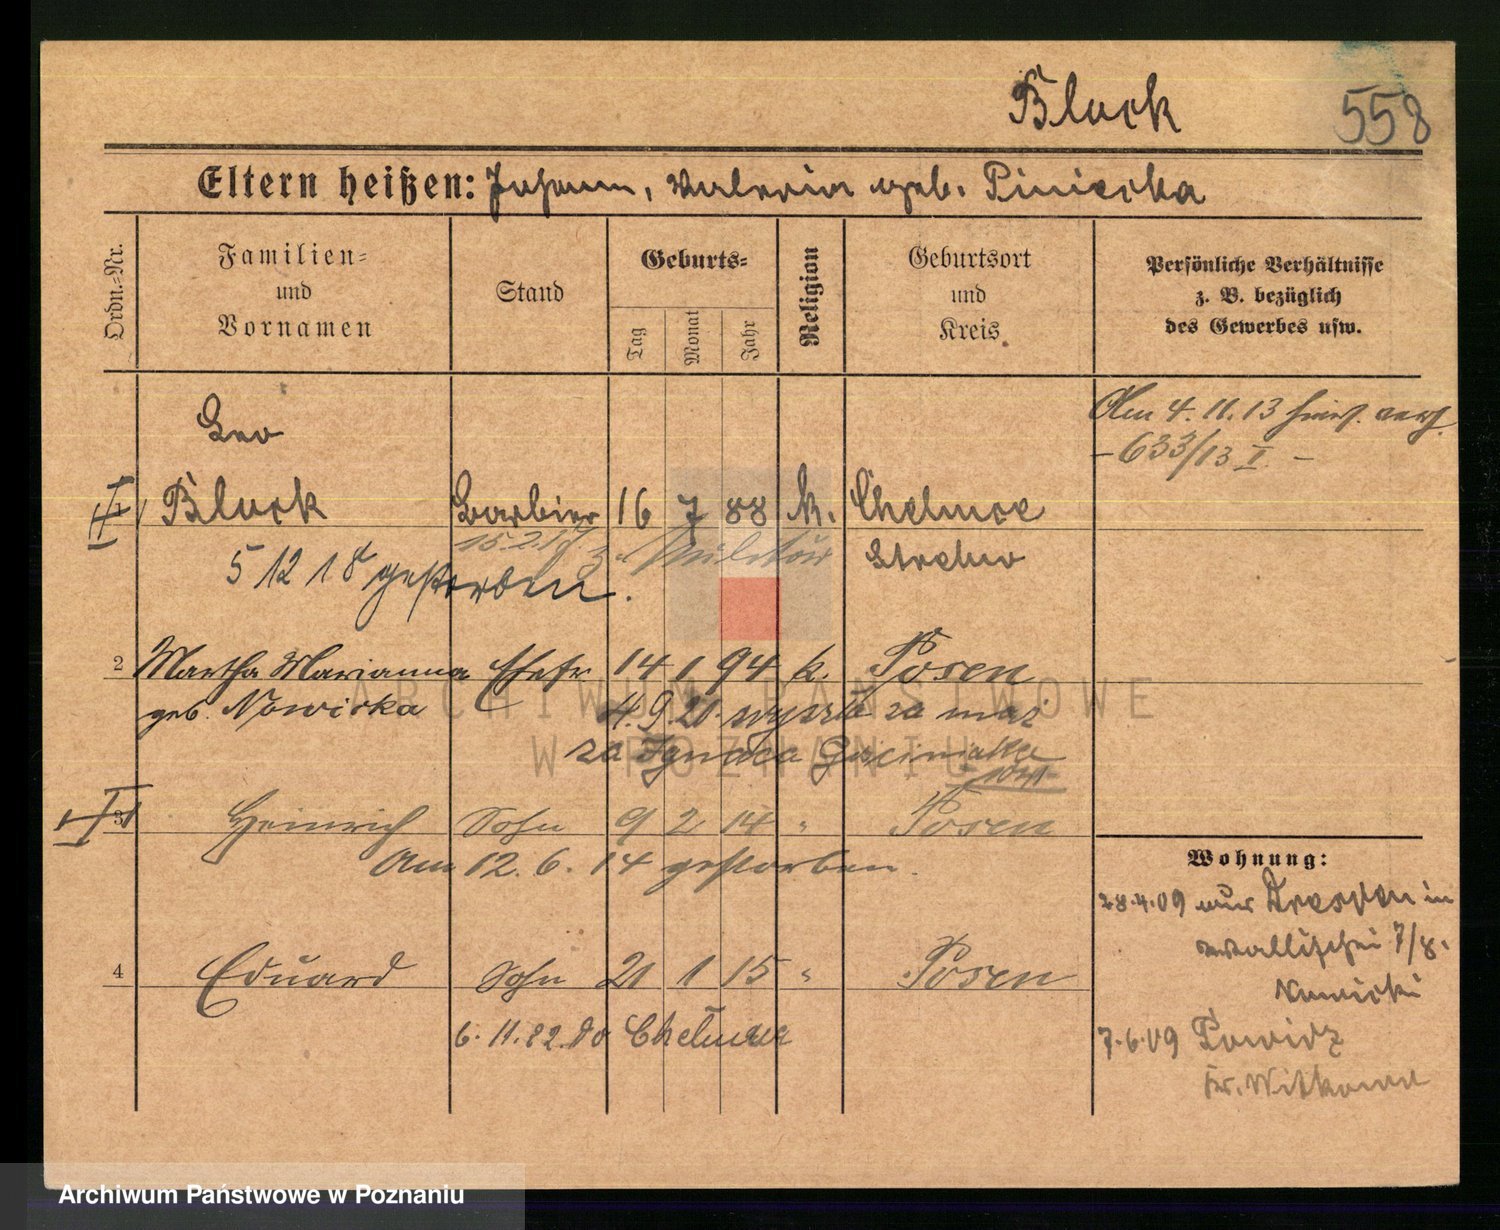 Block
558
Eltern heißen: Johann, Valeria geb. Piniecka
Ordn.-Nr.
Familien-
und
Vornamen
Stand
Geburts-
Tag
Monat
Jahr
Religion
Geburtsort
und
Kreis
Persönliche Verhältnisse
z. B. bezüglich
des Gewerbes usw.
Am 4. 11. 13
- 633/13 I. -
Leo
Block Barbier 16 7 88 k. Chelmce
15.2.17 z. Militär Strelno
5 12 18 gestorben.
2 Martha Marianna Ehefr 14 1 94 k. Posen
geb. Nowicka 4.9.20. wyszła za mąż
za Ignaca
3 Heinrich Sohn 9 2 14 " Posen
Am 12. 6. 14 gestorben.
4 Eduard Sohn 21 1 15 " Posen
6. 11. 22. do Chelmce
Wohnung:
28.4.09 aus Dresden in
Wallischei 7/8.
7.6.09 Powidz
Kr. Witkowo
ARCHIWUM PAŃSTWOWE
W POZNANIU
Archiwum Państwowe w Poznaniu